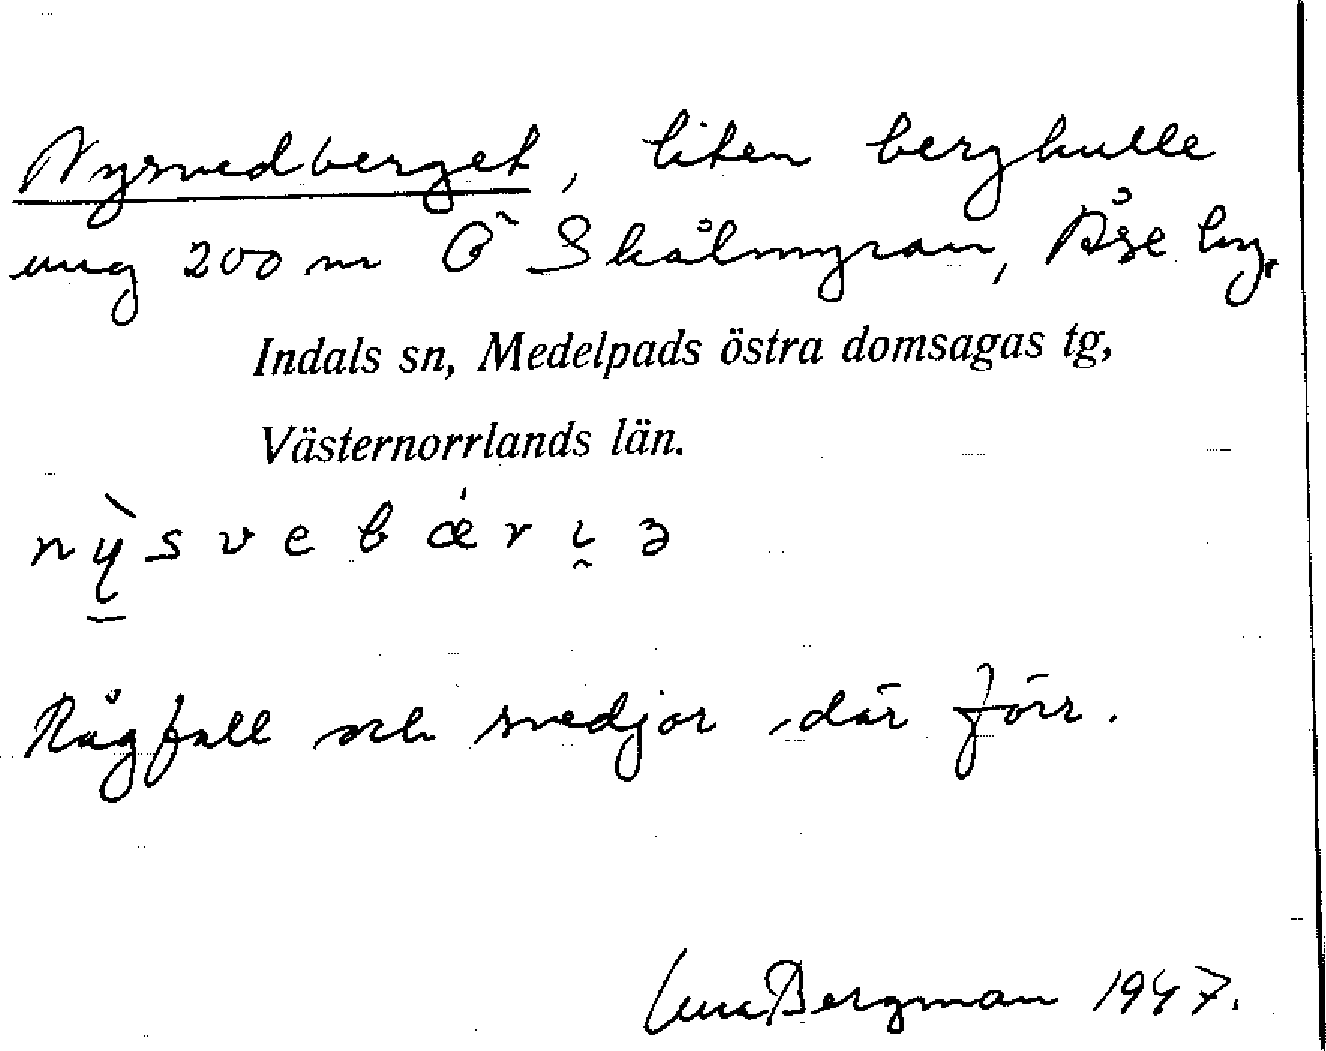 Nysvedberget, liten bergkulle
ung 200 m Ö Skålmyran, Åse by.
Indals sn, Medelpads östra domsagas tg,
Västernorrlands län.
nỳ̠svebǽrı̰ə
Rågfall och svedjor där förr.
Bergman 1947.